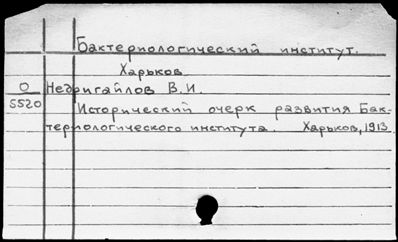 Бактериологический институт.
Харьков
О Недригайлов В.И.
5520 Исторический очерк развития Бак-
териологического института. Харьков, 1913